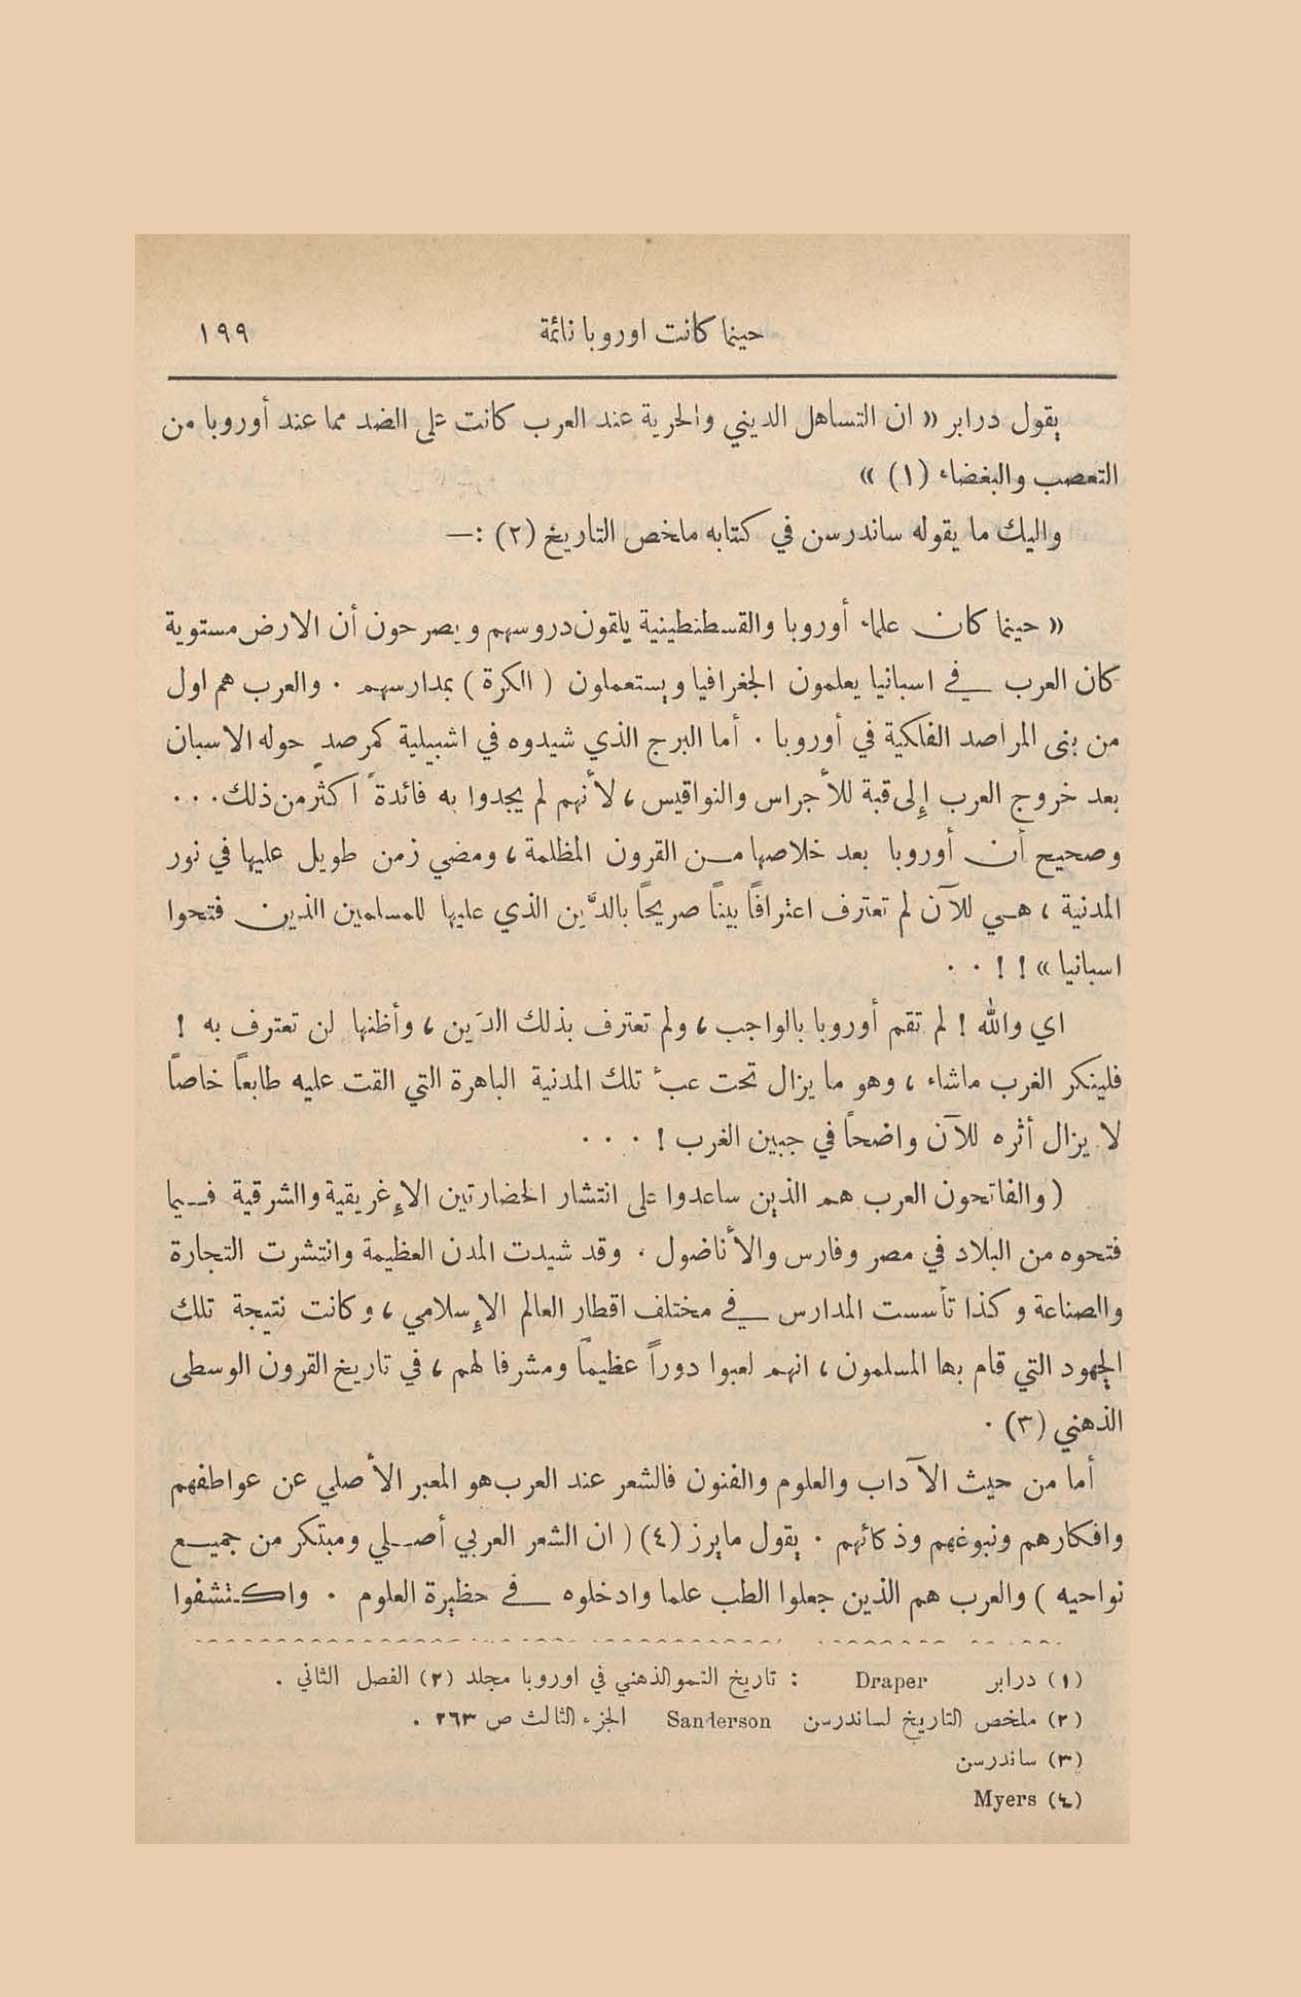 حينما كانت اوروبا نائمة ١٩٩
يقول درابر « ان التساهل الديني والحرية عند العرب كانت على الضد مما عند أوروبا من
التعصب والبغضاء (١) »
واليك ما يقوله ساندرسن في كتابه ملخص التاريخ (٢) :—
« حينما كان علماء أوروبا والقسطنطينية يلقون دروسهم ويصرحون أن الارض مستوية
كان العرب في اسبانيا يعلمون الجغرافيا ويستعملون ( الكرة ) بمدارسهم . والعرب هم اول
من بنى المراصد الفلكية في أوروبا . أما البرج الذي شيدوه في اشبيلية كمرصدٍ حوله الاسبان
بعد خروج العرب إلى قبة للأجراس والنواقيس ، لأنهم لم يجدوا به فائدةً اكثر من ذلك . . .
وصحيح أن أوروبا بعد خلاصها من القرون المظلمة ، ومضي زمن طويل عليها في نور
المدنية ، هي للآن لم تعترف اعترافًا بينًا صريحًا بالدَّين الذي عليها للمسلمين الذين فتحوا
اسبانيا » ! ! . .
اي والله ! لم تقم أوروبا بالواجب ، ولم تعترف بذلك الدَين ، وأظنها لن تعترف به !
فلينكر الغرب ماشاء ، وهو ما يزال تحت عبء تلك المدنية الباهرة التي القت عليه طابعاً خاصاً
لا يزال أثره للآن واضحاً في جبين الغرب ! . . .
( والفاتحون العرب هم الذين ساعدوا على انتشار الحضارتين الإغريقية والشرقية فيما
فتحوه من البلاد في مصر وفارس والأناضول . وقد شيدت المدن العظيمة وانتشرت التجارة
والصناعة وكذا تأسست المدارس في مختلف اقطار العالم الإسلامي ، وكانت نتيجة تلك
الجهود التي قام بها المسلمون ، انهم لعبوا دوراً عظيماً ومشرفا لهم ، في تاريخ القرون الوسطى
الذهني (٣) .
أما من حيث الآداب والعلوم والفنون فالشعر عند العرب هو المعبر الأصلي عن عواطفهم
وافكارهم ونبوغهم وذكائهم . يقول مايرز (٤) ( ان الشعر العربي أصلي ومبتكر من جميع
نواحيه ) والعرب هم الذين جعلوا الطب علما وادخلوه في حظيرة العلوم . واكتشفوا
(١) درابر Draper : تاريخ النمو الذهني في اوروبا مجلد (٢) الفصل الثاني .
(٢) ملخص التاريخ لساندرسن Sanderson الجزء الثالث ص ٢٦٣ .
(٣) ساندرسن
(٤) Myers